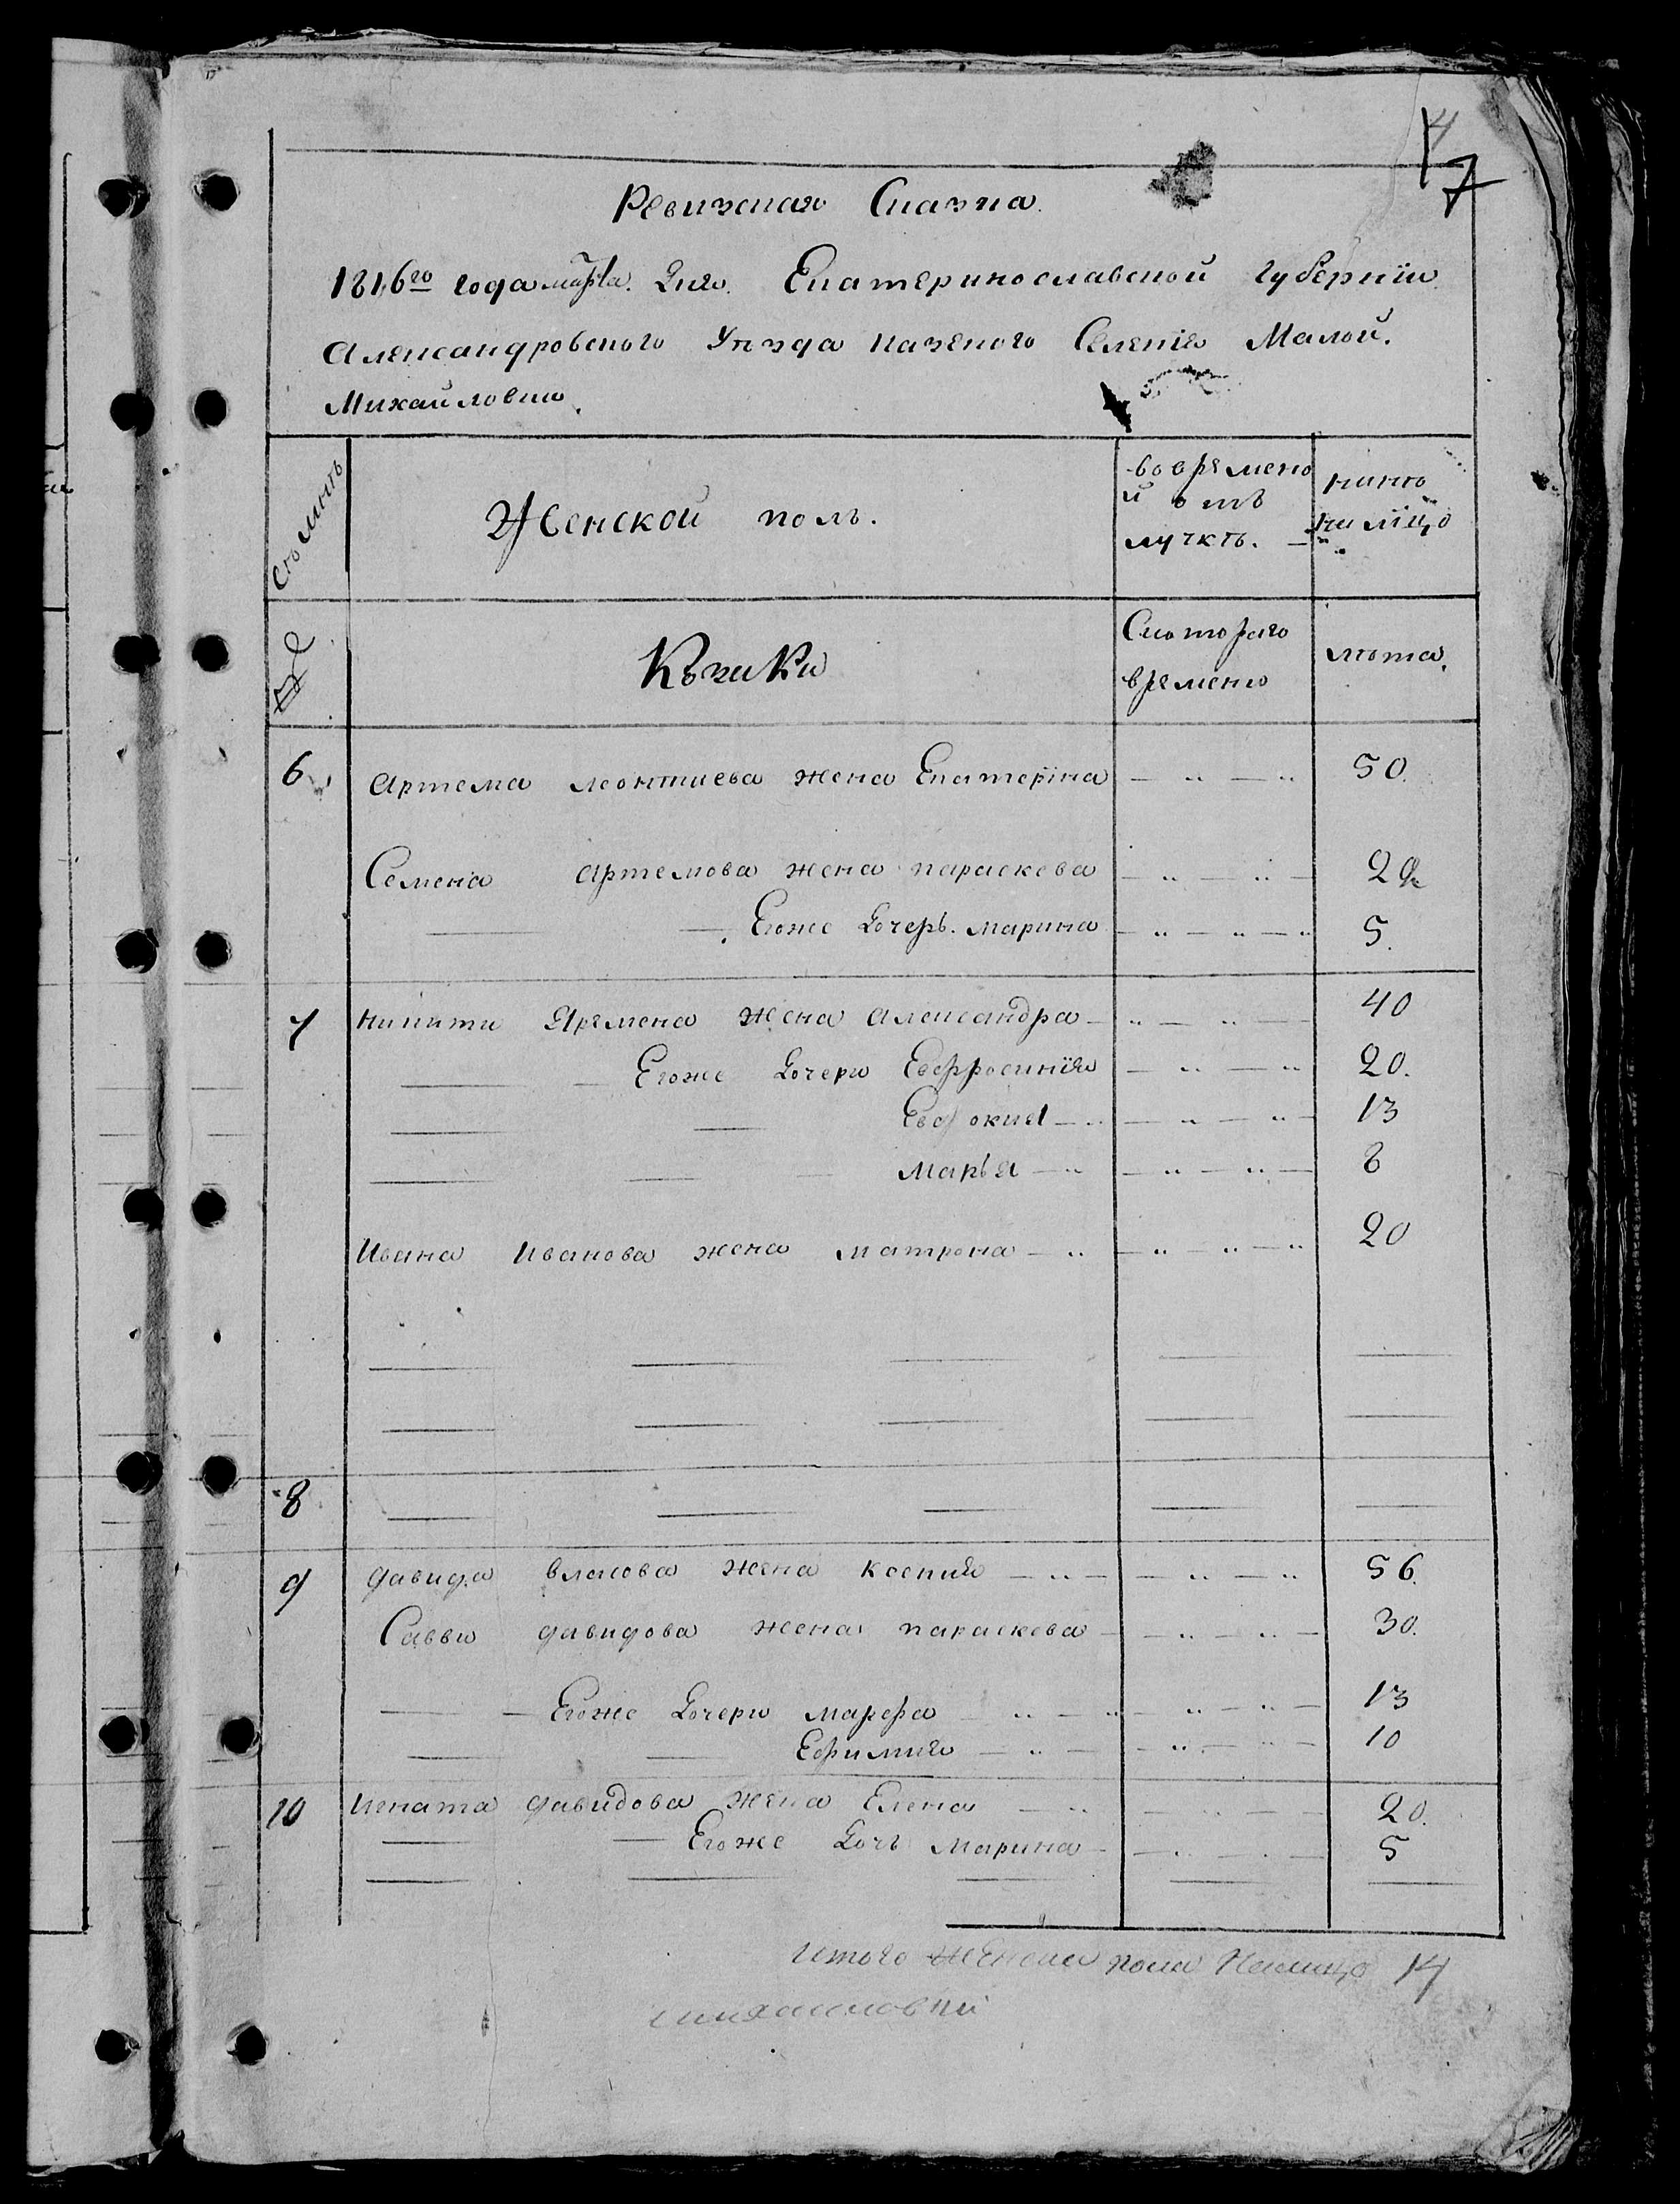 14
7
Ревизская Сказка
1816го года марта дня. Екатеринославской губернїи
Александровского уезда казеного Селенїя Малой.
Михайловки
Женской полъ.
во времено
й отъ
лучкѣ.
нынѣ
на лїцо
Съ котораго
времени
лѣта.
6 Артема леонтиева жена Екатерїна 50.
Семена Артемова жена параскева
Егоже дочерь. марина 5.
7 Никиты Яремена жена александра 40
Егоже дочери Евфросинїя 20.
Евдокия 13
Марья 8
Ивана Иванова жена матрона 20
8
9 Давида власова жена ксения 56.
Саввы давидова жена параскева 30.
Егоже дочери марфа 13
Ефимия 10
10 Игната давидова жена Елена 20.
Егоже дочь марина 5
итого женска пола налицо 14